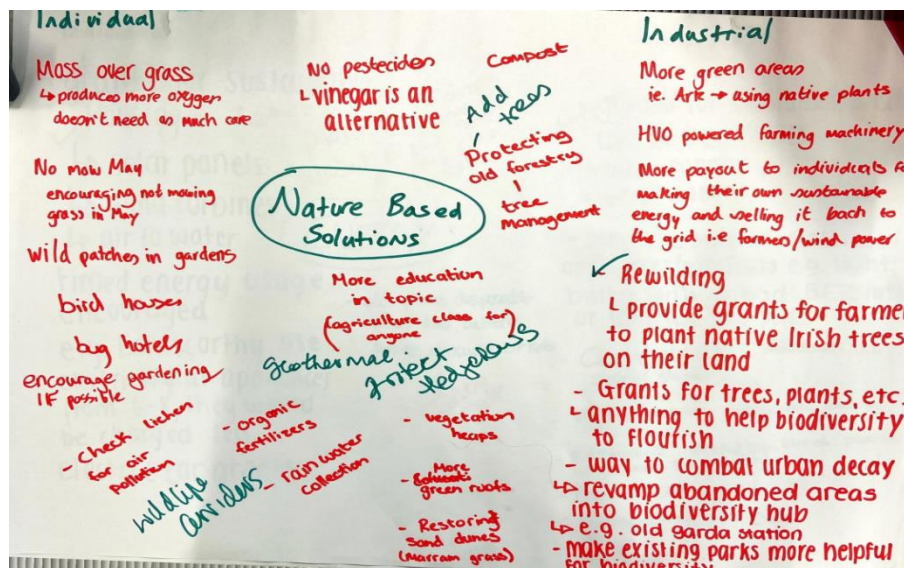 Individual
Moss over grass
↳ produces more oxygen
doesn't need as much care
No mow May
encouraging not mowing
grass in May
wild patches in gardens
bird houses
bug hotels
encourage gardening
IF possible
- Check lichen
for air
pollution
wildlife
corridors
- organic
fertilizers
- rain water
collection
No pesticides
↳ vinegar is an
alternative
Compost
Add
trees
Protecting
old forestry
tree
management
Nature Based
Solutions
More education
in topic
(agriculture class for
anyone)
geothermal
protect
hedgerows
- vegetation
heaps
More
- green roofs
- Restoring
sand dunes
(marram grass)
Industrial
More green areas
ie. Ark → using native plants
HVO powered farming machinery
More payout to individuals
making their own sustainable
energy and selling it back to
the grid i.e farmers/wind power
Rewilding
↳ provide grants for farmer
to plant native Irish trees
on their land
- Grants for trees, plants, etc
↳ anything to help biodiversity
to flourish
- way to combat urban decay
↳ revamp abandoned areas
into biodiversity hub
↳ e.g. old garda station
- make existing parks more helpful
for biodiversity